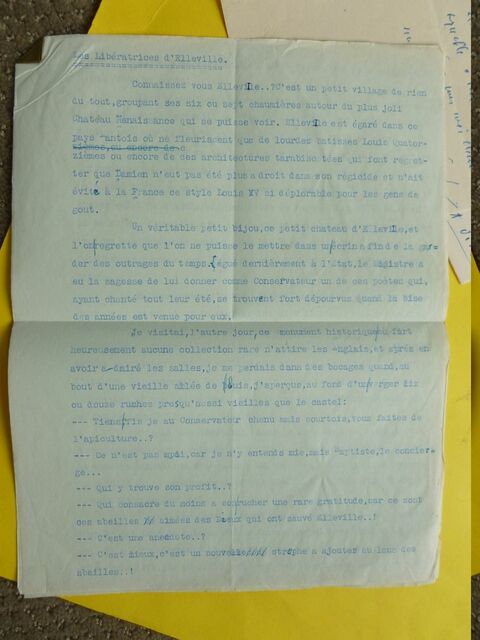 Les Libératrices d'Elleville.
Connaissez vous Elleville..?C'est un petit village de rien
du tout,groupant ses six ou sept chaumières autour du plus joli
Chateau Renaissance qui se puisse voir. Elleville est égaré dans ce
pays Mantois où ne fleurissent que de lourdes batisses Louis Quator-
zièmes,ou encore de
zièmes ou encore de ces architectures tarabiscotées qui font regret-
ter que Damien n'eut pas été plus adroit dans son régicide et n'ait
évité à la France ce style Louis XV si déplorable pour les gens de
gout.
Un véritable petit bijou,ce petit chateau d'Elleville,et
l'on regrette que l'on ne puisse le mettre dans un écrin afin de la gar-
der des outrages du temps. Légué dernièrement à l'Etat,le Ministre a
eu la sagesse de lui donner comme Conservateur un de ces poètes qui,
ayant chanté tout leur été,se trouvent fort dépourvus quand la bise
des années est venue pour eux.
Je visitai,l'autre jour,ce monument historique,où fort
heureusement aucune collection rare n'attire les Anglais,et après en
avoir admiré les salles,je me perdais dans des bocages quand,au
bout d'une vieille allée de buis,j'aperçus,au fond d'un verger dix
ou douze ruches presqu'aussi vieilles que le castel:
--- Tiens,fis je au Conservateur chenu mais courtois,vous faites de
l'apiculture..?
--- Ce n'est pas moi,car je n'y entends mie,mais Baptiste,le concier-
ge...
--- Qui y trouve son profit..?
--- Qui consacre du moins a son rucher une rare gratitude,car ce sont
ces abeilles aimées des Dieux qui ont sauvé Elleville..!
--- C'est une anecdote..?
--- C'est mieux,c'est une nouvelle strophe a ajouter au lans des
abeilles..!